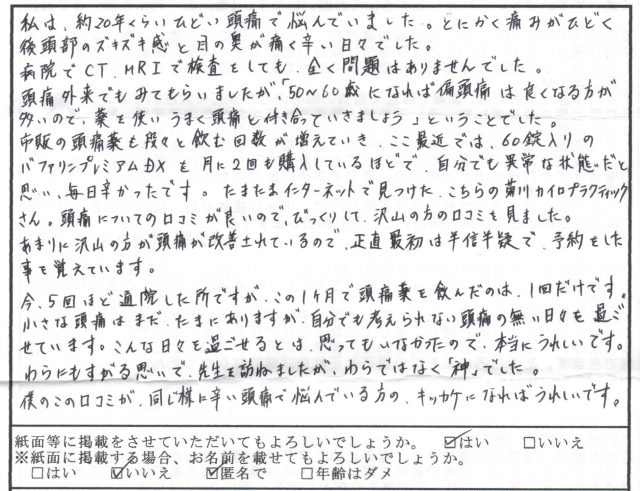 私は、約20年くらいひどい頭痛で悩んでいました。とにかく痛みがひどく
後頭部のズキズキ感と目の奥が痛く辛い日々でした。
病院でCT、MRIで検査をしても、全く問題はありませんでした。
頭痛外来でもみてもらいましたが、「50〜60歳になれば偏頭痛は良くなる方が
多いので、薬を使いうまく頭痛と付き合っていきましょう」ということでした。
市販の頭痛薬も段々と飲む回数が増えていき、ここ最近では、60錠入りの
バファリンプレミアムDXを月に2回も購入しているほどで、自分でも異常な状態だと
思い、毎日辛かったです。たまたまインターネットで見つけた、こちらの菊川カイロプラクティック
さん。頭痛についての口コミが良いので、びっくりして、沢山の方の口コミを見ました。
あまりに沢山の方が頭痛が改善されているので、正直最初は半信半疑で、予約をした
事を覚えています。
今、5回ほど通院した所ですが、この1ヶ月で頭痛薬を飲んだのは、1回だけです。
小さな頭痛はまだ、たまにありますが、自分でも考えられない頭痛の無い日々を過ご
せています。こんな日々を過ごせるとは、思ってもいなかったので、本当にうれしいです。
わらにもすがる思いで、先生を訪ねましたが、わらではなく「神」でした。
僕のこの口コミが、同じ様に辛い頭痛で悩んでいる方の、キッカケになればうれしいです。
紙面等に掲載をさせていただいてもよろしいでしょうか。 ☑はい □いいえ
※紙面に掲載する場合、お名前を載せてもよろしいでしょうか。
□はい ☑いいえ ☑匿名で □年齢はダメ